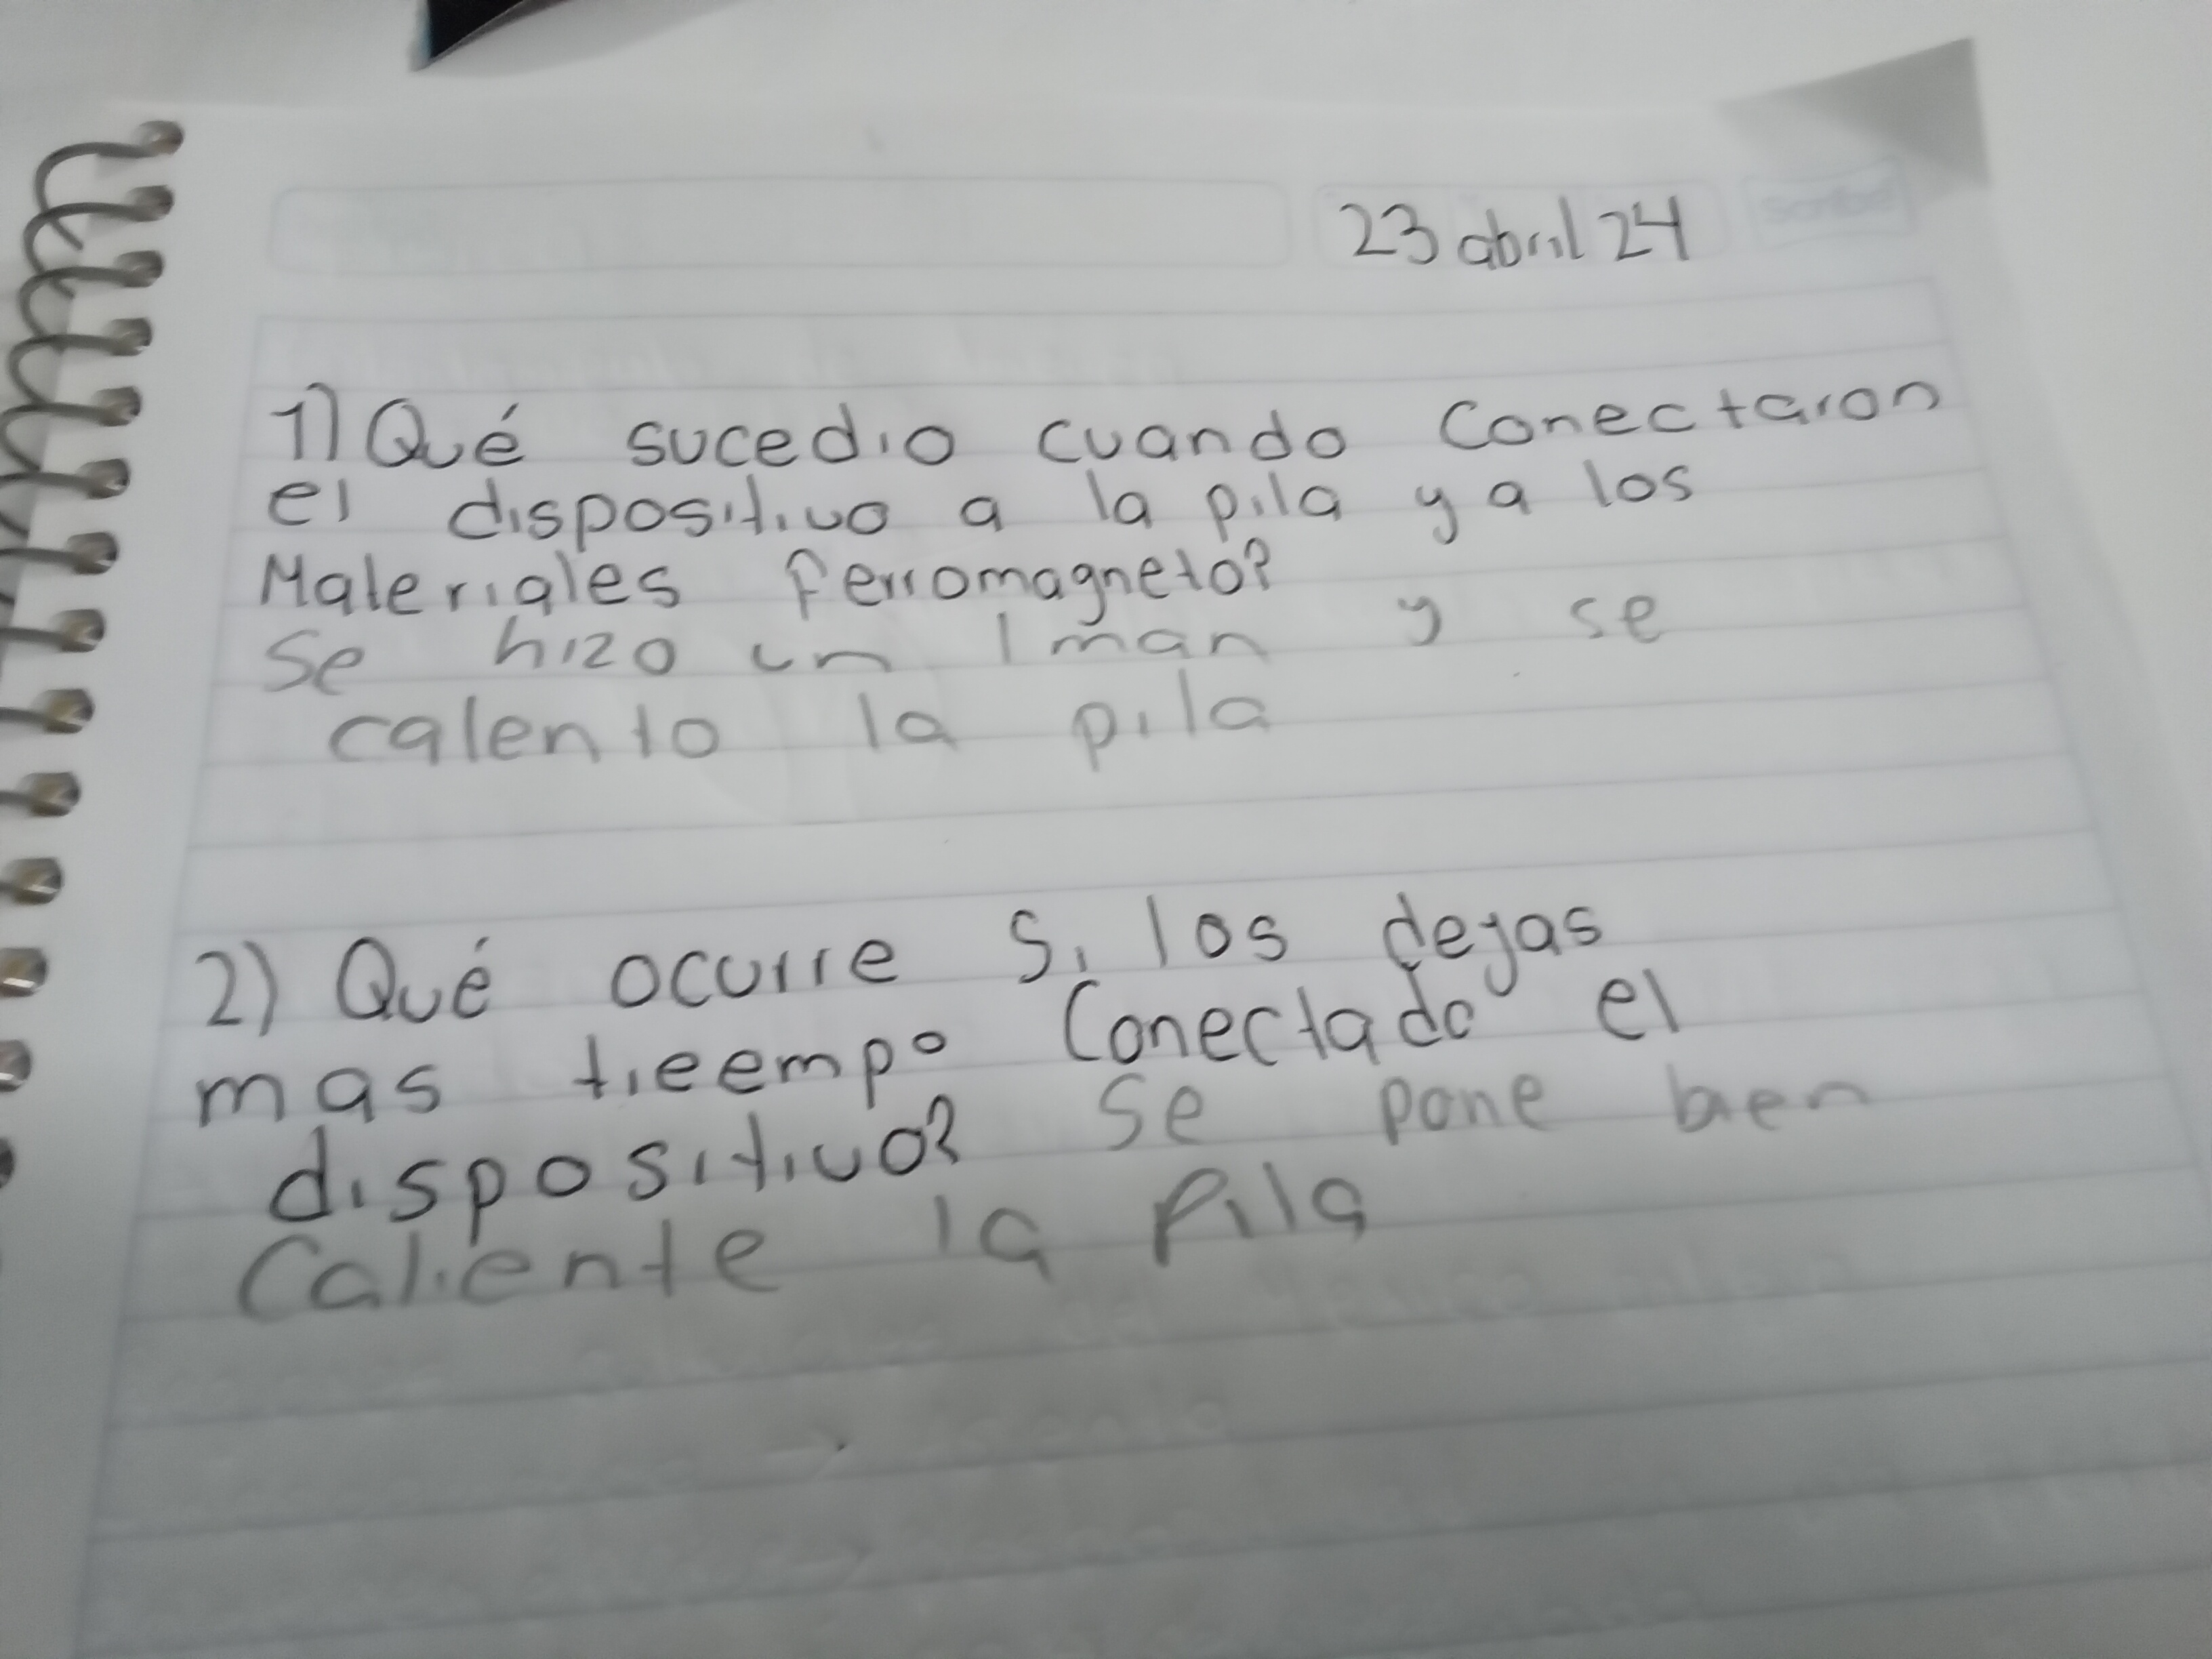 23 abril 24
1) Qué sucedio cuando Conectaron
el dispositivo a la pila y a los
Materiales ferromagneto?
Se hizo un Iman y se
calento la pila
2) Qué ocurre si los dejas
mas tieempo Conectado el
dispositivo? Se pone bien
Caliente la Pila